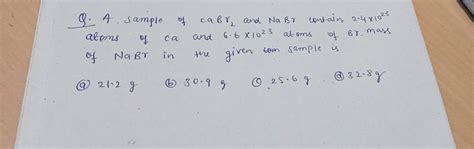 Q. A sample of CaBr2 and NaBr contain 2.4x10²³
atoms of Ca and 6.6 x10²³ atoms of Br. mass
of NaBr in the given sample is
(a) 21.2 g (b) 30.9 g (c) 25.6 g (d) 32.8 g